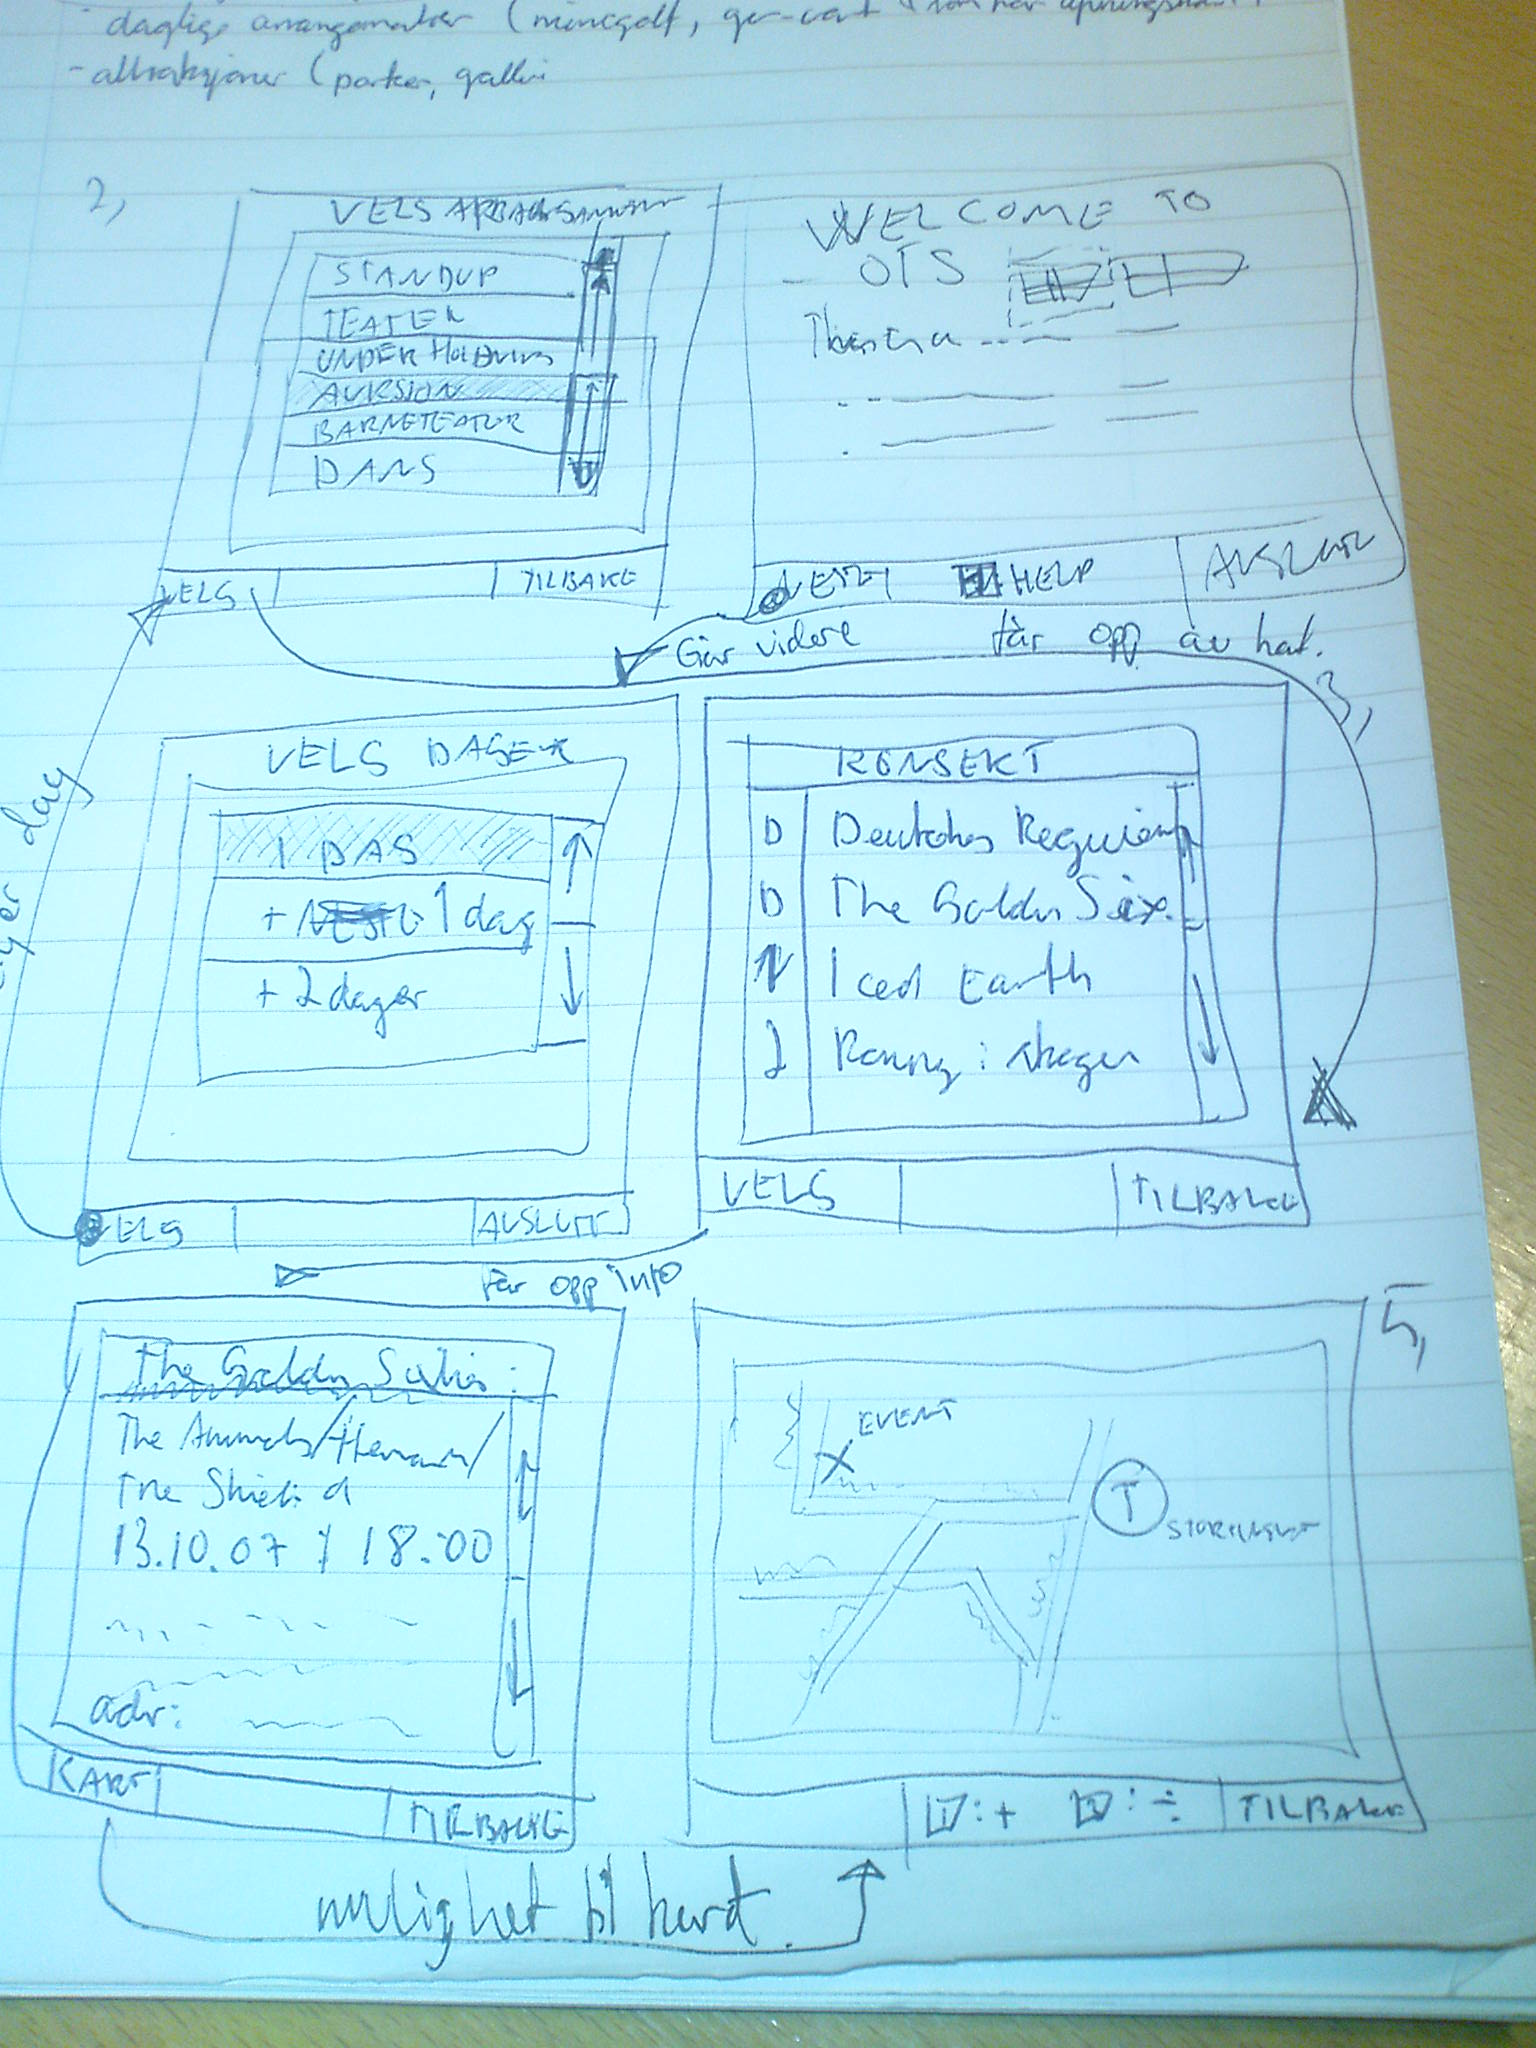 daglige arrangementer (minigolf, go-cart
- attraksjoner (parker, galleri
2,
VELG ARRANGEMENT
STANDUP
TEATER
UNDERHOLDNING
AUKSION
BARNETEATER
DANS
VELG
TILBAKE
WELCOME TO
OTS
NESTE
HELP
AVSLUTT
Går videre
får opp
3,
VELG DAGER
1 DAG
+ 1 dag
+ 2 dager
VELG
AVSLUTT
dag
KONSERT
D Deutches Requiem
D The Golden Six.
N Iced Earth
VELG
TILBAKE
får opp info
The Golden
The Animals/Herman/
The
13.10.07 / 18:00
adr:
KART
TILBAKE
mulighet til kart.
5,
EVENT
T
:+ :÷
TILBAKE